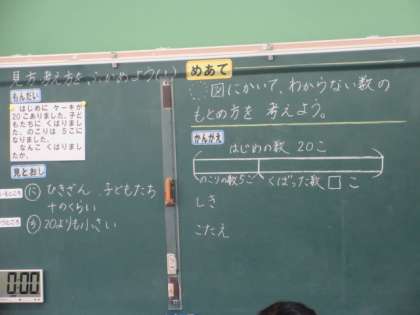 見方・考え方を ふかめよう(1)
もんだい
はじめに ケーキが
20こありました。子ど
もたちに くばりまし
た。のこりは 5こに
なりました。
なんこ くばりまし
たか。
見とおし
に ひきざん 子どもたち
ち 20よりも小さい
めあて
図にかいて、わからない数の
もとめ方を 考えよう。
かんがえ
はじめの数 20こ
のこりの数5こ くばった数 □ こ
しき
こたえ
0:00